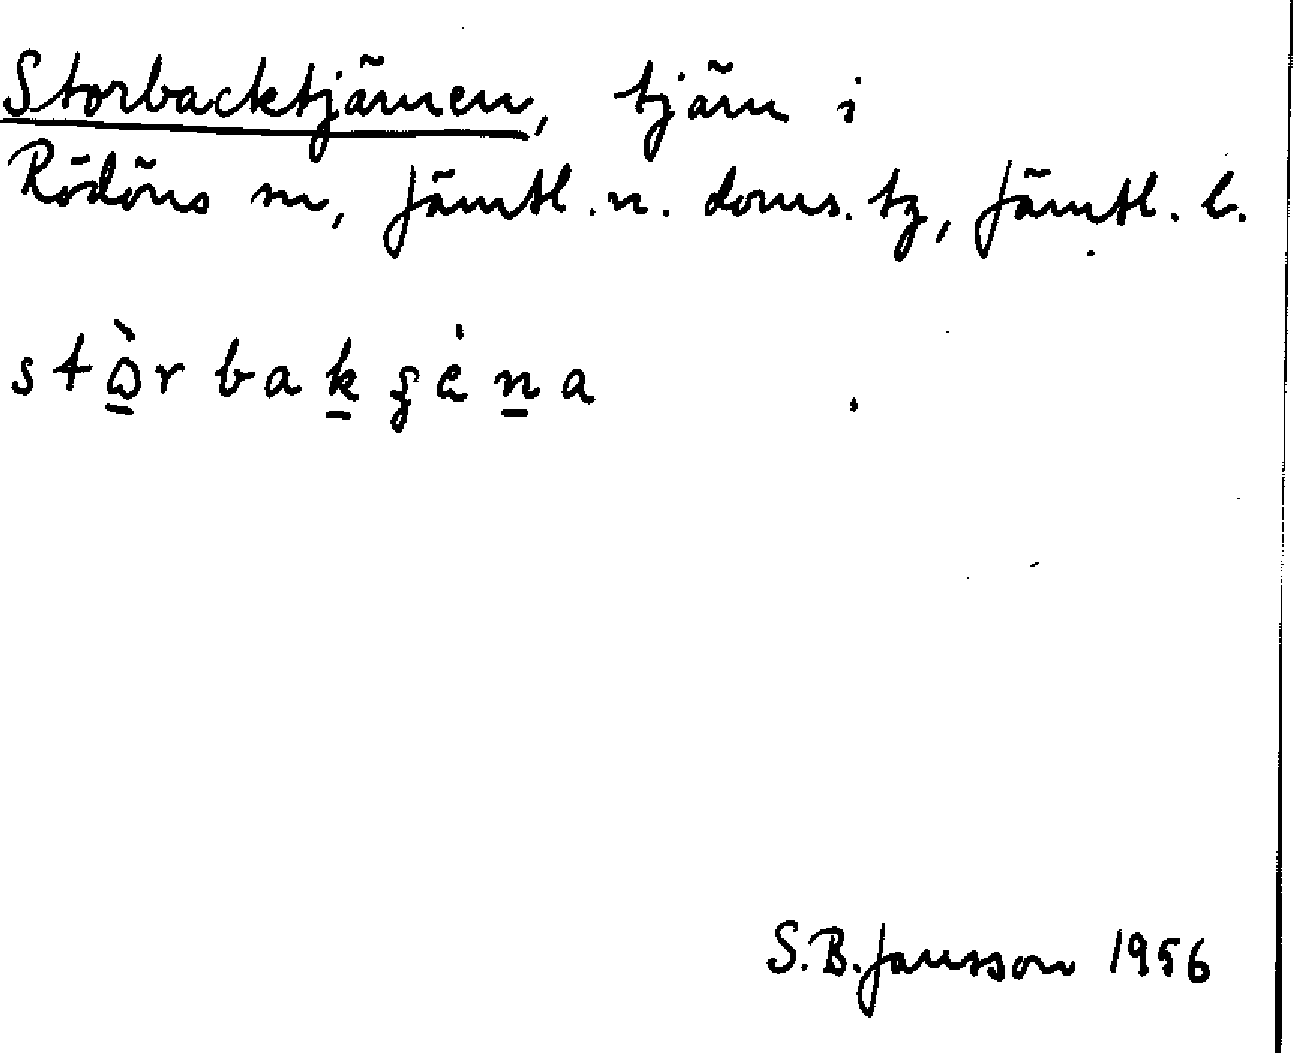 Storbacktjärnen, tjärn i
Rödöns sn, Jämtl. n. doms. tg, Jämtl. l.
S.B. Jansson 1956